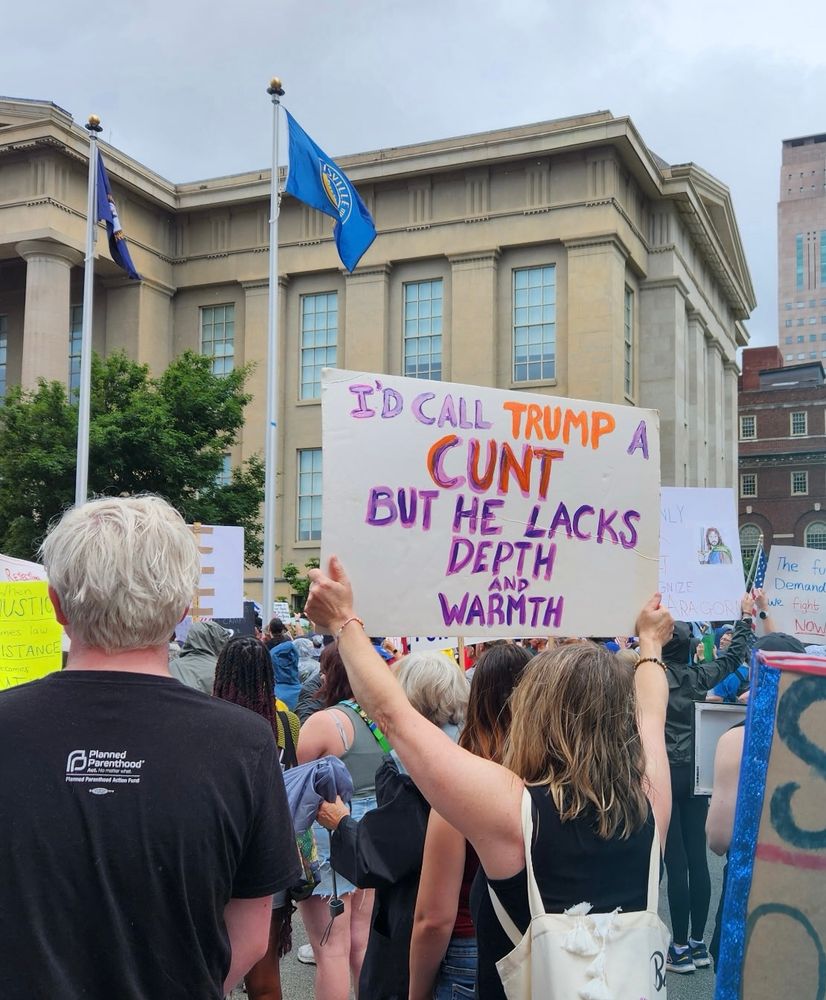 VILLE
I'D CALL TRUMP A
CUNT
BUT HE LACKS
DEPTH
AND
WARMTH
NLY
GNIZE
ARAGORN
The fu
Demand
we fight
NOW
When
USTIC
mes law
STANCE
ecomes
Planned
Parenthood
Act. No matter what.
Planned Parenthood Action Fund